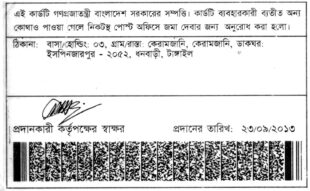 এই কার্ডটি গণপ্রজাতন্ত্রী বাংলাদেশ সরকারের সম্পত্তি। কার্ডটি ব্যবহারকারী ব্যতীত অন্য
কোথাও পাওয়া গেলে নিকটস্থ পোস্ট অফিসে জমা দেবার জন্য অনুরোধ করা হলো।
ঠিকানা: বাসা/হোল্ডিং: ০৩, গ্রাম/রাস্তা: কেরামজানি, কেরামজানি, ডাকঘর:
ইসপিনজারপুর - ২০৫২, ধনবাড়ী, টাঙ্গাইল
প্রদানকারী কর্তৃপক্ষের স্বাক্ষর
প্রদানের তারিখ: ২৩/০৯/২০১৩